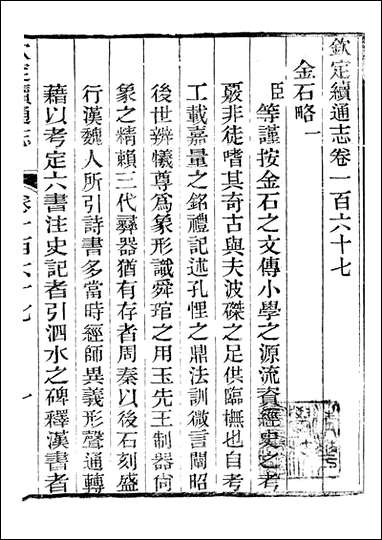 欽定續通志卷一百六十七
金石略一
臣等謹按金石之文傳小學之源流資經史之考
覈非徒嗜其奇古與夫波磔之足供臨橅也自考
工載嘉量之銘禮記述孔悝之鼎法訓微言闡昭
後世辨犧尊為象形識舜琯之用玉先王制器尚
象之精賴三代彞器猶有存者周秦以後石刻盛
行漢魏人所引詩書多當時經師異義形聲通轉
藉以考定六書注史記者引泗水之碑釋漢書者
欽定續通志
卷一百六十七
一